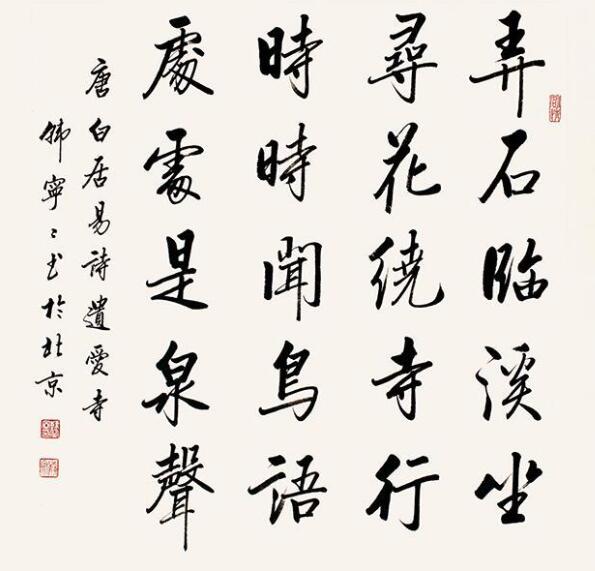 弄石臨溪坐
尋花繞寺行
時時聞鳥語
處處是泉聲
唐白居易詩遺愛寺
韩寧〻书於北京